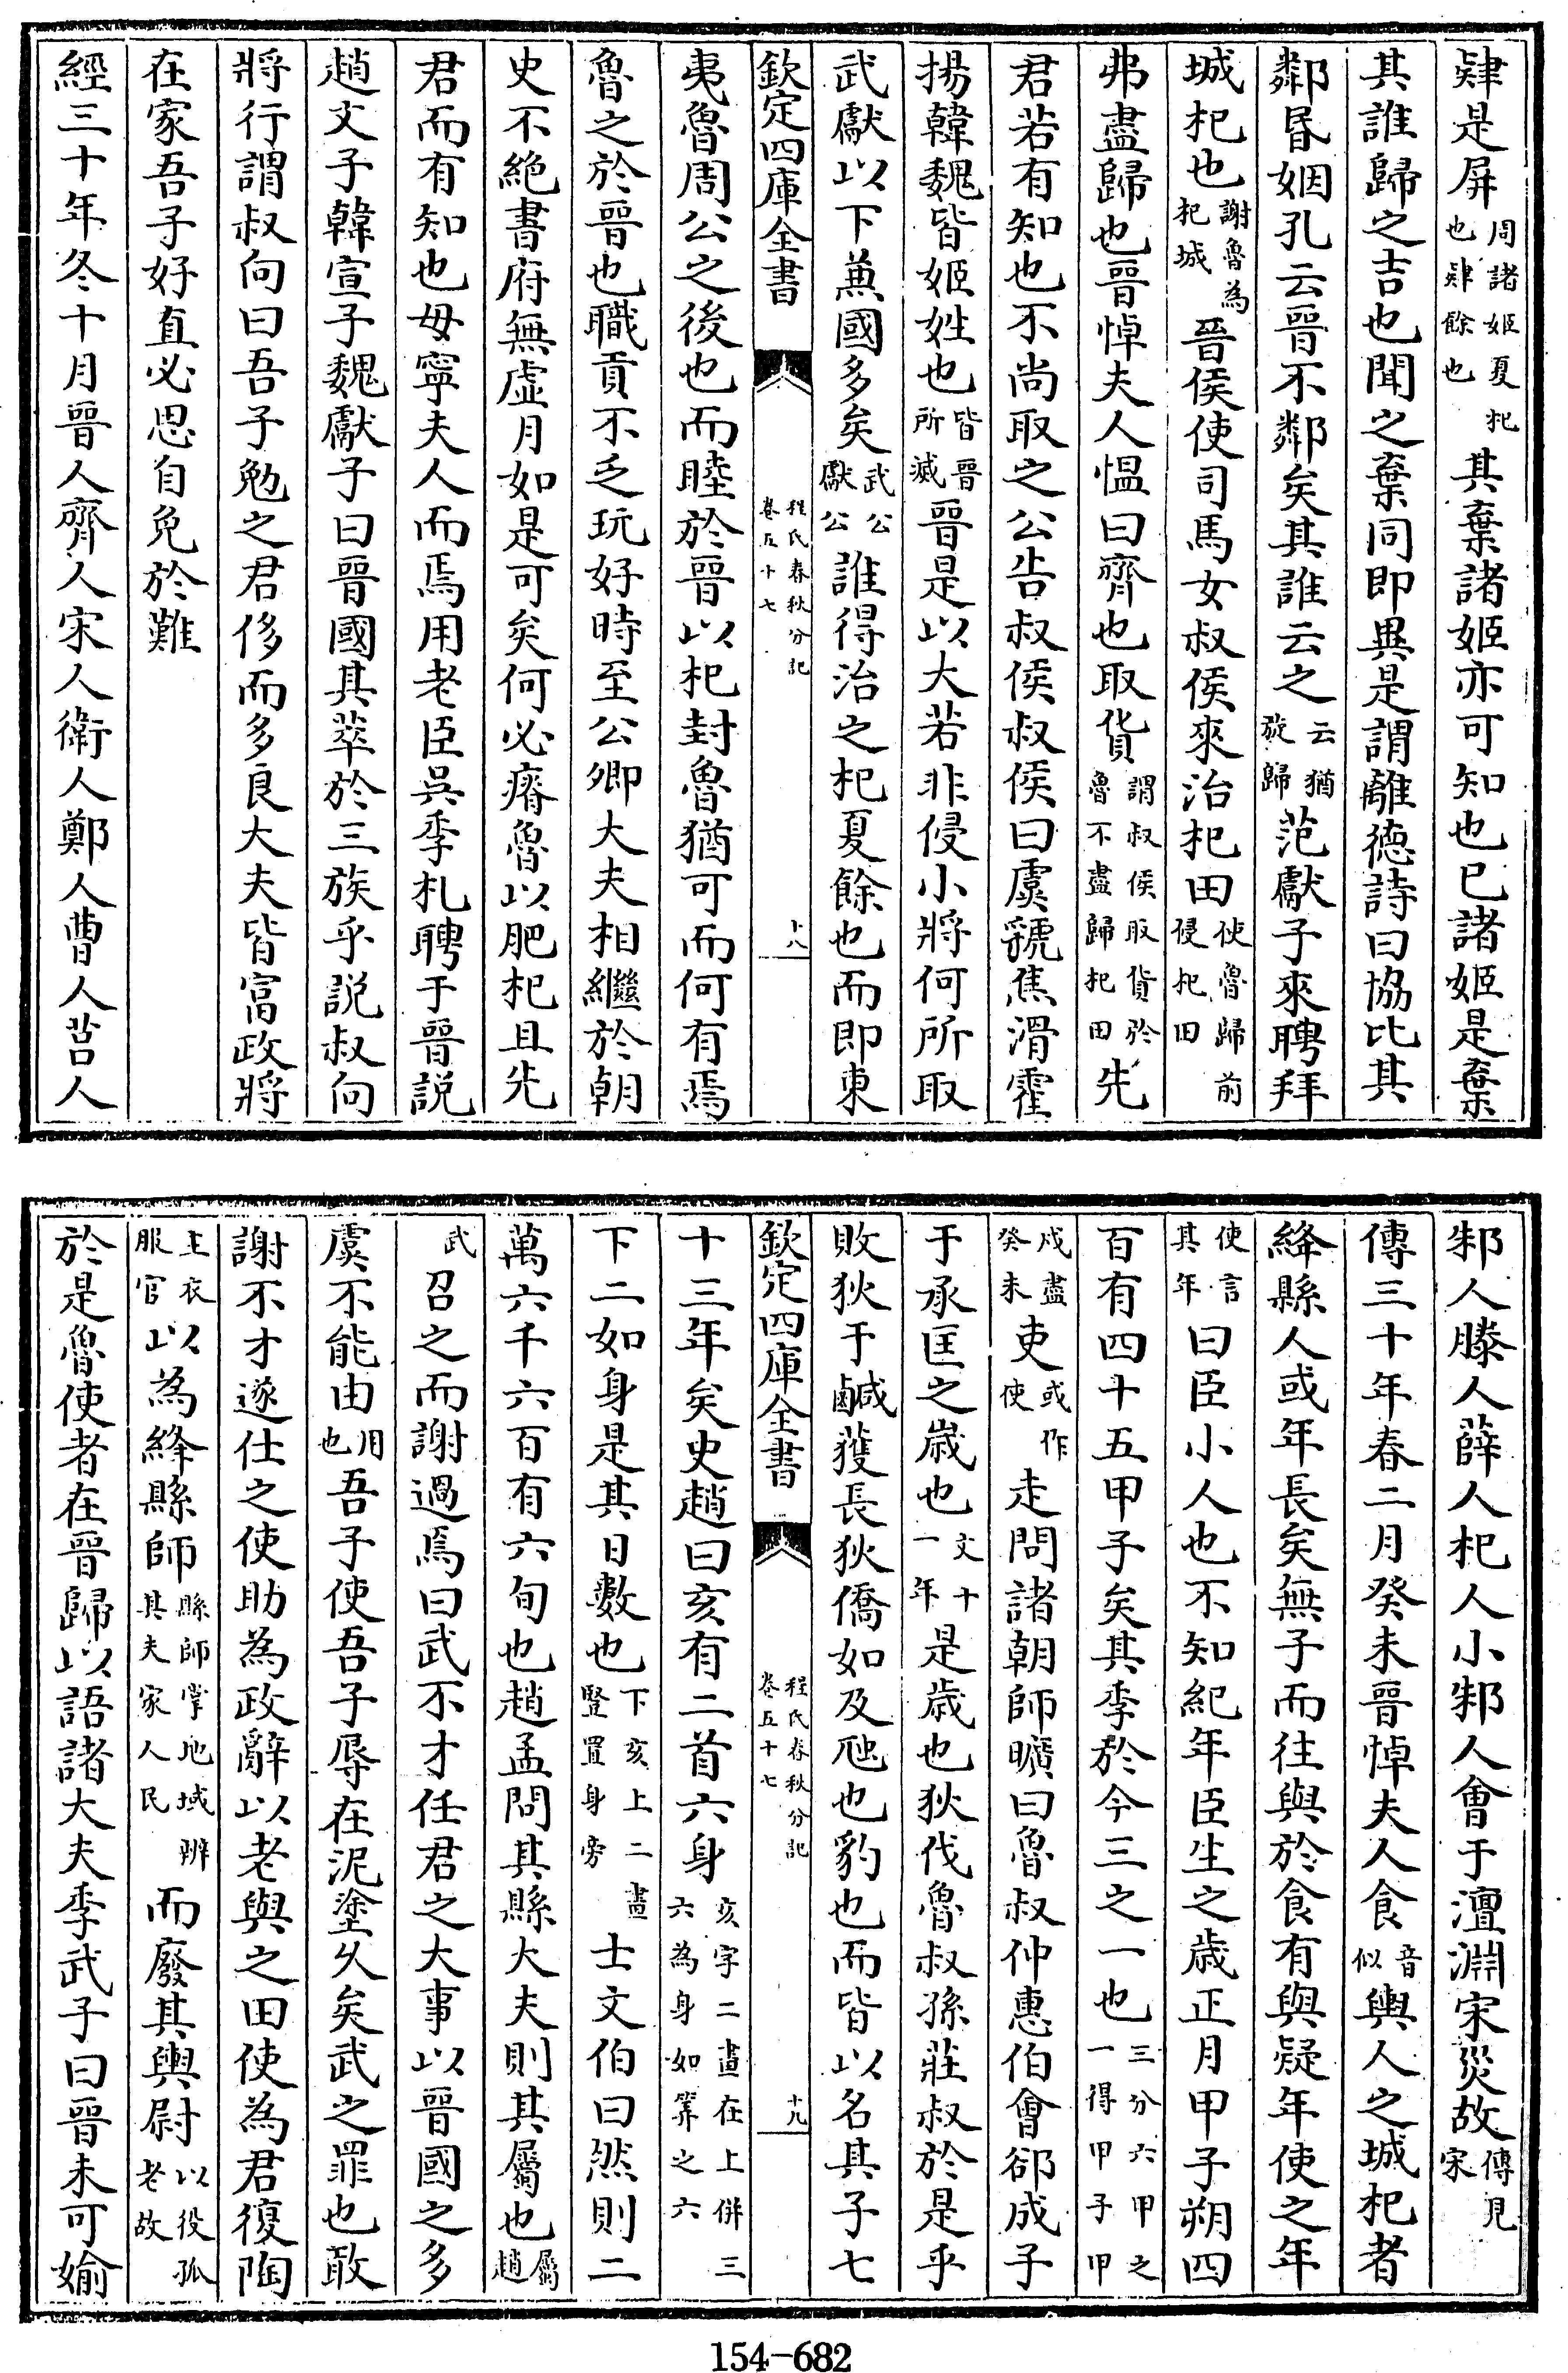 肄是屏周諸姬夏杞也肄餘也其棄諸姬亦可知也已諸姬是棄
其誰歸之吉也聞之棄同即異是謂離徳詩曰協比其
鄰昬姻孔云晉不鄰矣其誰云之云猶旋歸范獻子來聘拜
城杞也謝魯為杞城晉侯使司馬女叔侯來治杞田使魯歸前侵杞田
弗盡歸也晉悼夫人愠曰齊也取貨謂叔侯取貨於魯不盡歸杞田先
君若有知也不尚取之公告叔侯叔侯曰虞虢焦滑霍
揚韓魏皆姬姓也皆晉所滅晉是以大若非侵小將何所取
武獻以下兼國多矣武公獻公誰得治之杞夏餘也而即東
欽定四庫全書
程氏春秋分記
卷五十七
十八
夷魯周公之後也而睦於晉以杞封魯猶可而何有焉
魯之於晉也職貢不乏玩好時至公卿大夫相繼於朝
史不絶書府無虛月如是可矣何必瘠魯以肥杞且先
君而有知也毋寧夫人而焉用老臣吳季札聘于晉説
趙文子韓宣子魏獻子曰晉國其萃於三族乎説叔向
將行謂叔向曰吾子勉之君侈而多良大夫皆富政將
在家吾子好直必思自免於難
經三十年冬十月晉人齊人宋人衛人鄭人曹人莒人
邾人滕人薛人杞人小邾人會于澶淵宋災故傳見宋
傳三十年春二月癸未晉悼夫人食音似輿人之城杞者
絳縣人或年長矣無子而往與於食有與疑年使之年
使言其年曰臣小人也不知紀年臣生之歳正月甲子朔四
百有四十五甲子矣其季於今三之一也三分六甲之一得甲子甲
戍盡癸未吏或作使走問諸朝師曠曰魯叔仲惠伯會郤成子
于承匡之歳也文十一年是歳也狄伐魯叔孫莊叔於是乎
敗狄于鹹獲長狄僑如及虺也豹也而皆以名其子七
欽定四庫全書
程氏春秋分記
卷五十七
十九
十三年矣史趙曰亥有二首六身亥字二畫在上併三六為身如筭之六
下二如身是其日數也下亥上二畫豎置身旁士文伯曰然則二
萬六千六百有六旬也趙孟問其縣大夫則其屬也屬趙
武召之而謝過焉曰武不才任君之大事以晉國之多
虞不能由用也吾子使吾子辱在泥塗久矣武之罪也敢
謝不才遂仕之使助為政辭以老與之田使為君復陶
主衣服官以為絳縣師縣師掌地域辨其夫家人民而廢其輿尉以役孤老故
於是魯使者在晉歸以語諸大夫季武子曰晉未可媮
154-682